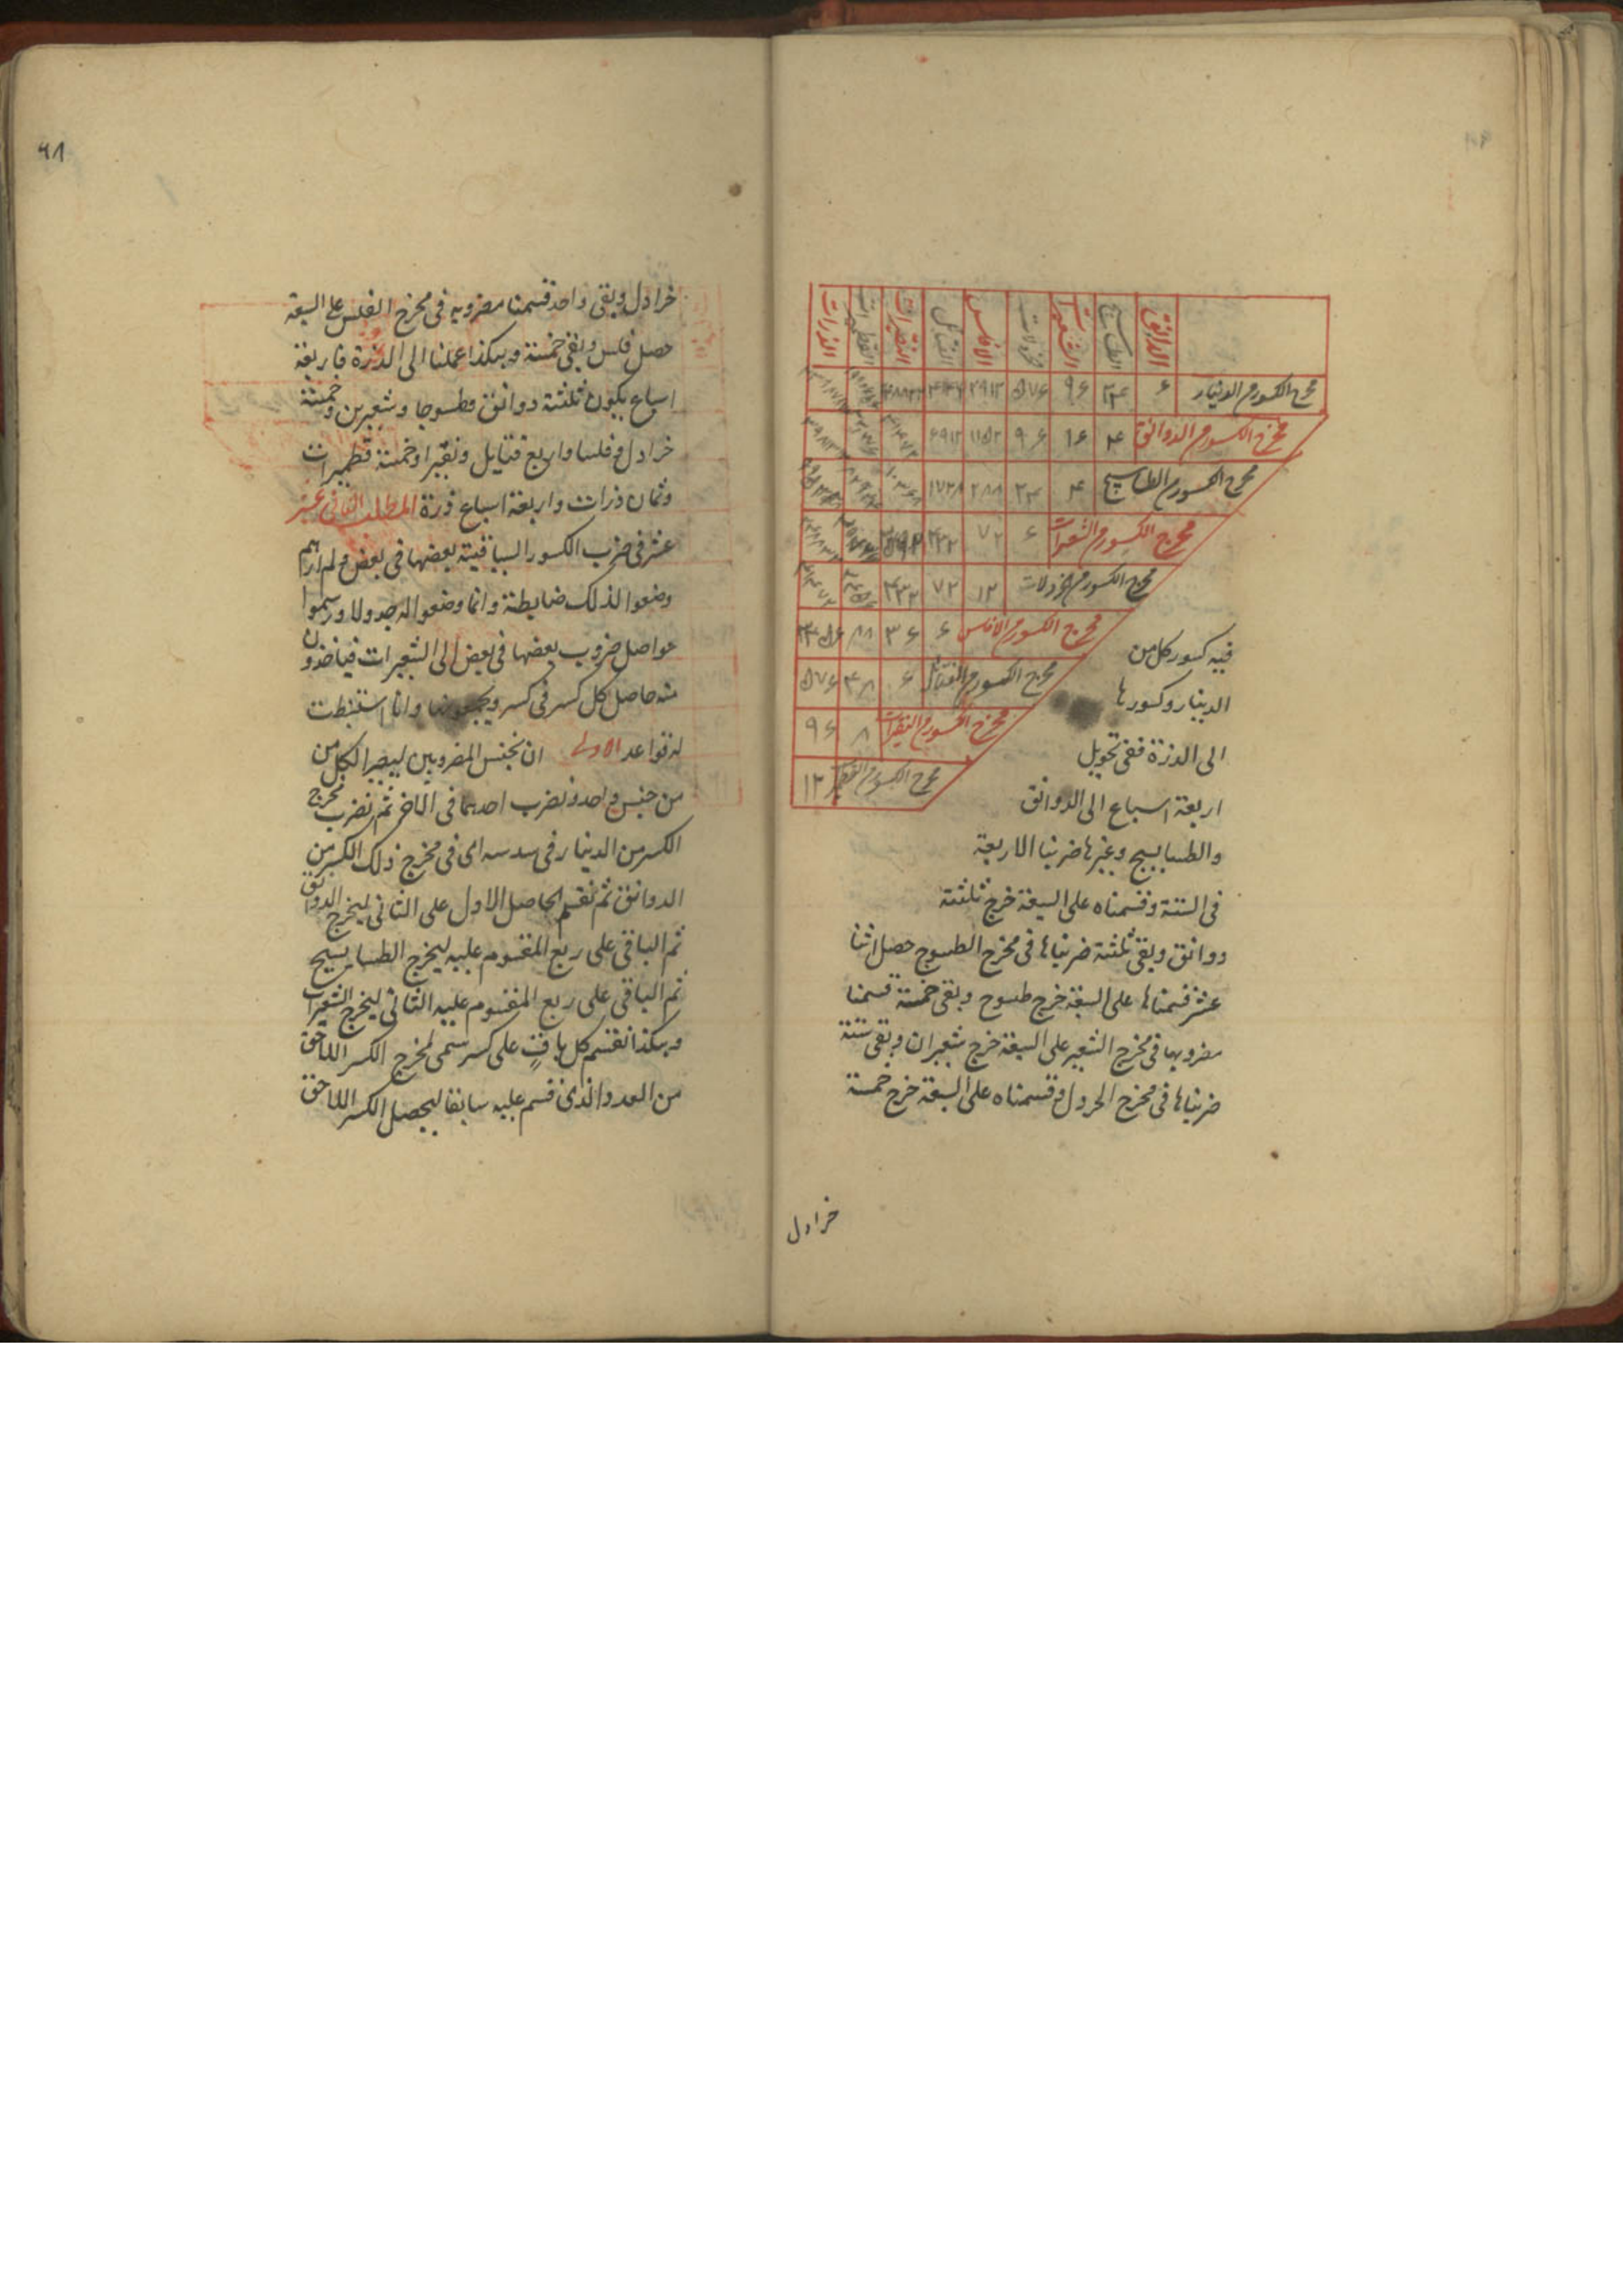 الدوانق الطساسيج الشعيرات خردلات الافلس الفتايل النقيرات القطميرات الذرات
مخرج الكسور من الدينار ۶ ۲۴ ۹۶ ۵۷۶
مخرج الكسور من الدوانق ۴ ۱۶ ۹۶ ۱۱۵۲ ۶۹۱۲
مخرج الكسور من الطساسيج ۴ ۲۴ ۲۸۸ ۱۷۲۸
مخرج الكسور من الشعيرات ۶ ۷۲ ۴۳۲
مخرج الكسور من خردلات ۱۲ ۷۲ ۴۳۲
مخرج الكسور من الافلس ۶ ۳۶
مخرج الكسور من الفتايل ۶ ۴۸ ۵۷۶
مخرج الكسور من النقيرات ۸ ۹۶
مخرج الكسور من القطمير ۱۲
فيه كسور كل من
الدينار وكسورها
الى الذرة ففى تحويل
اربعة اسباع الى الدوانق
والطساسيج وغيرها ضربنا الاربعة
فى الستة وقسمناه على السبعة خرج ثلثة
دوانق وبقى ثلثة ضربناها فى مخرج الطسوج حصل اثنا
عشر قسمناها على السبعة خرج طسوج وبقى خمسة قسمنا
مضروبها فى مخرج الشعير على السبعة خرج شعيران وبقى ستة
ضربناها فى مخرج الخردل وقسمناه على السبعة خرج خمسة
خرادل
۶۸
خرادل وبقى واحد قسمنا مضروبه فى مخرج الفلس على السبعة
حصل فلس وبقى خمسة وهكذا عملنا الى الذرة فاربعة
اسباع يكون ثلثة دوانق وطسوجا وشعيرين وخمسة
خرادل وفلسا واربع فتايل ونقيرا وخمسة قطميرات
وثمان ذرات واربعة اسباع ذرة المطلب الثانى عشر
عشر فى ضرب الكسور السياقية بعضها فى بعض ولم ارهم
وضعوا لذلك ضابطة وانما وضعوا له جدولا ورسموا
حواصل ضروب بعضها فى بعض الى الشعيرات فياخذون
منه حاصل كل كسر فى كسر ويجمعونها وانا استنبطت
له قواعد الاولى ان نجنس المضروبين ليصير الكل من
من جنس واحد ونضرب احدهما فى الاخر ثم نضرب مخرج
الكسر من الدينار فى سدسه اى فى مخرج ذلك الكسر من
الدوانق ثم نقسم الحاصل الاول على الثانى ليخرج الدوانق
ثم الباقى على ربع المقسوم عليه ليخرج الطساسيج
ثم الباقى على ربع المقسوم عليه الثانى ليخرج الشعيرات
وهكذا نقسم كل باقٍ على كسر سمى لمخرج الكسر اللاحق
من العدد الذى قسم عليه سابقا ليحصل الكسر اللاحق